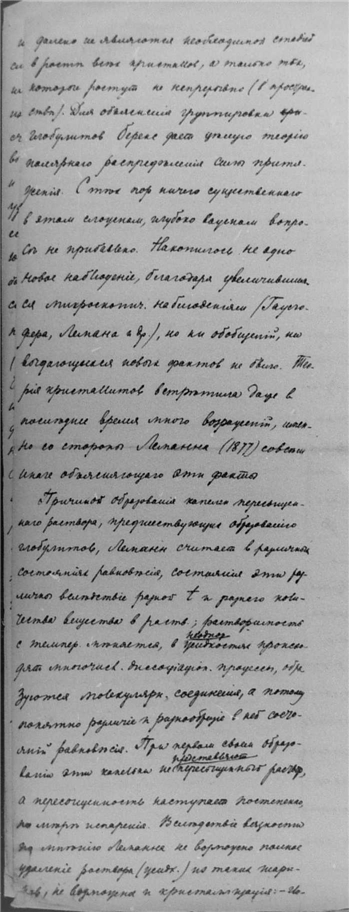 и далеко не являются необходимой стадіей
в ростѣ всѣхъ кристалловъ, а только тѣхъ,
которые ростутъ не непрерывно (въ простран-
ствѣ). Для объясненія группировки
глобулитовъ Беренсъ даетъ цѣлую теорію
полярнаго распредѣленія силы притя-
женія. Съ тѣхъ поръ ничего существеннаго
въ этомъ сложномъ, глубоко важномъ вопро-
сѣ не прибавлено. Накопилось не одно
новое наблюденіе, благодаря увеличившим-
ся микроскопич. наблюденіямъ (
Лемана и др.), но ни обобщеній, ни
выдающихся новыхъ фактовъ не было. Тео-
рія кристаллитовъ встрѣтила даже въ
последнее время много возраженій, имен-
но со стороны Леманна (1877) совсѣмъ
иначе объясняющаго эти факты
Причиной образованія капель пересыщен-
наго раствора, предшествующихъ образованію
глобулитовъ, Леманн считаетъ въ различныхъ
состояніяхъ равновѣсія, состоянія эти раз-
личны вслѣдствіе разной t и разнаго коли-
чества вещества въ раств.; растворимость
съ темпер. мѣняется, въ жидкостяхъ происхо-
дятъ многочисл. диссоціаціон. процессы, обра-
зуются молекулярн. соединенія, а потому
понятно различіе и разнообразіе въ ней состо-
яній равновѣсія. При первомъ своемъ образо-
ваніи эти капельки не представляютъ пересыщеннаго раствора,
а пересыщенность наступаетъ постепенно,
по мѣрѣ испаренія. Вслѣдствіе вязкости
по мнѣнію Леманна не возможно полное
удаленіе раствора (жидк.) изъ такихъ шари-
ковъ, не возможна и кристаллизація: –